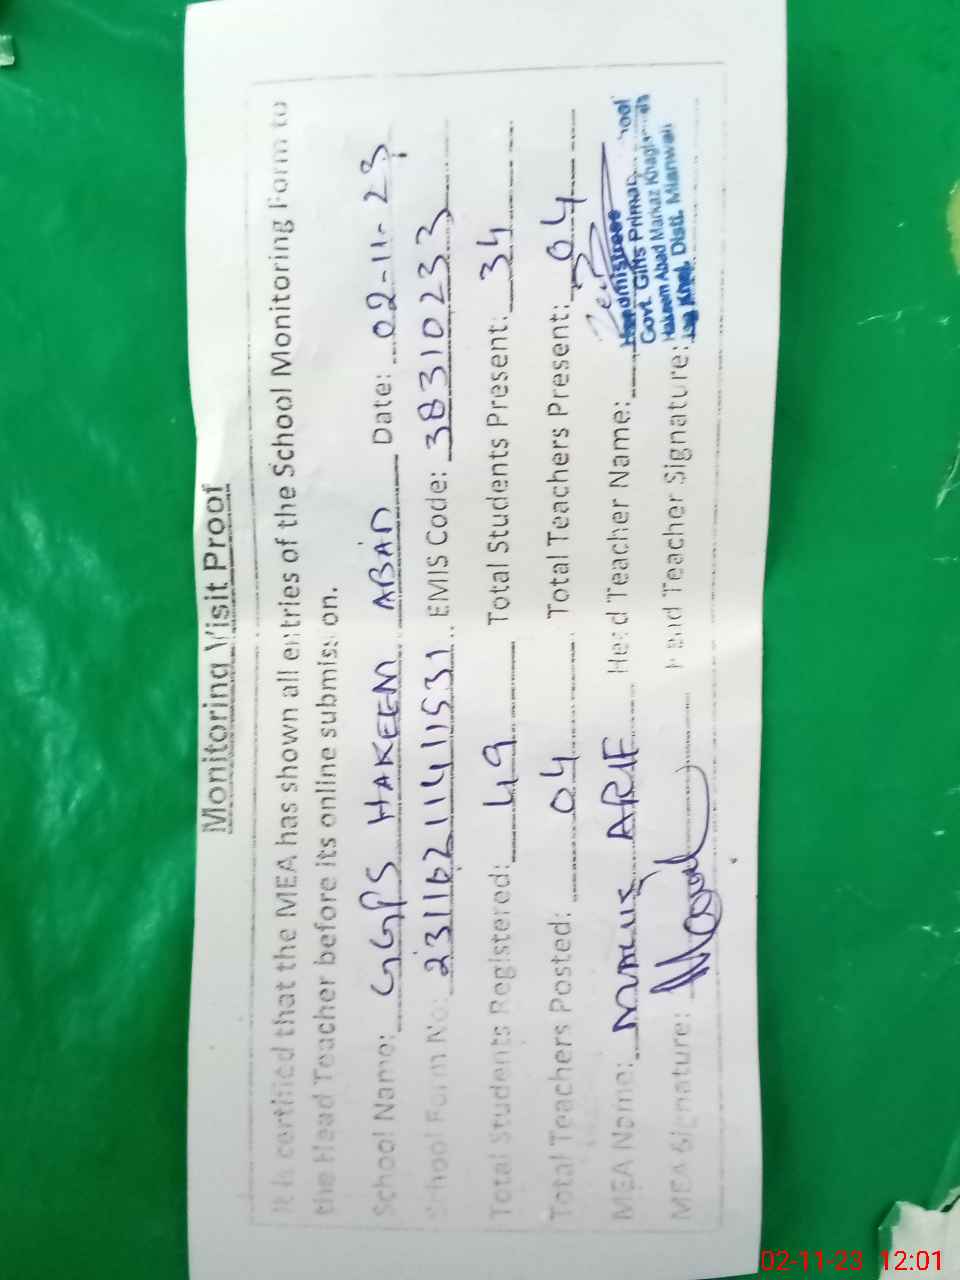 Monitoring Visit Proof
It is certified that the MEA has shown all entries of the School Monitoring Form to
the Head Teacher before its online submission.
School Name: GGPS HAKEEM ABAD Date: 02-11-23
School Form No: 23116211411531 EMIS Code: 38310233
Total Students Registered: 49 Total Students Present: 34
Total Teachers Posted: 04 Total Teachers Present: 04
MEA Name: ARIF Head Teacher Name:
MEA Signature: Head Teacher Signature:
Headmistress
Govt. Girls Primary School
Hakeem Abad Markaz
Distt. Mianwali
02-11-23 12:01